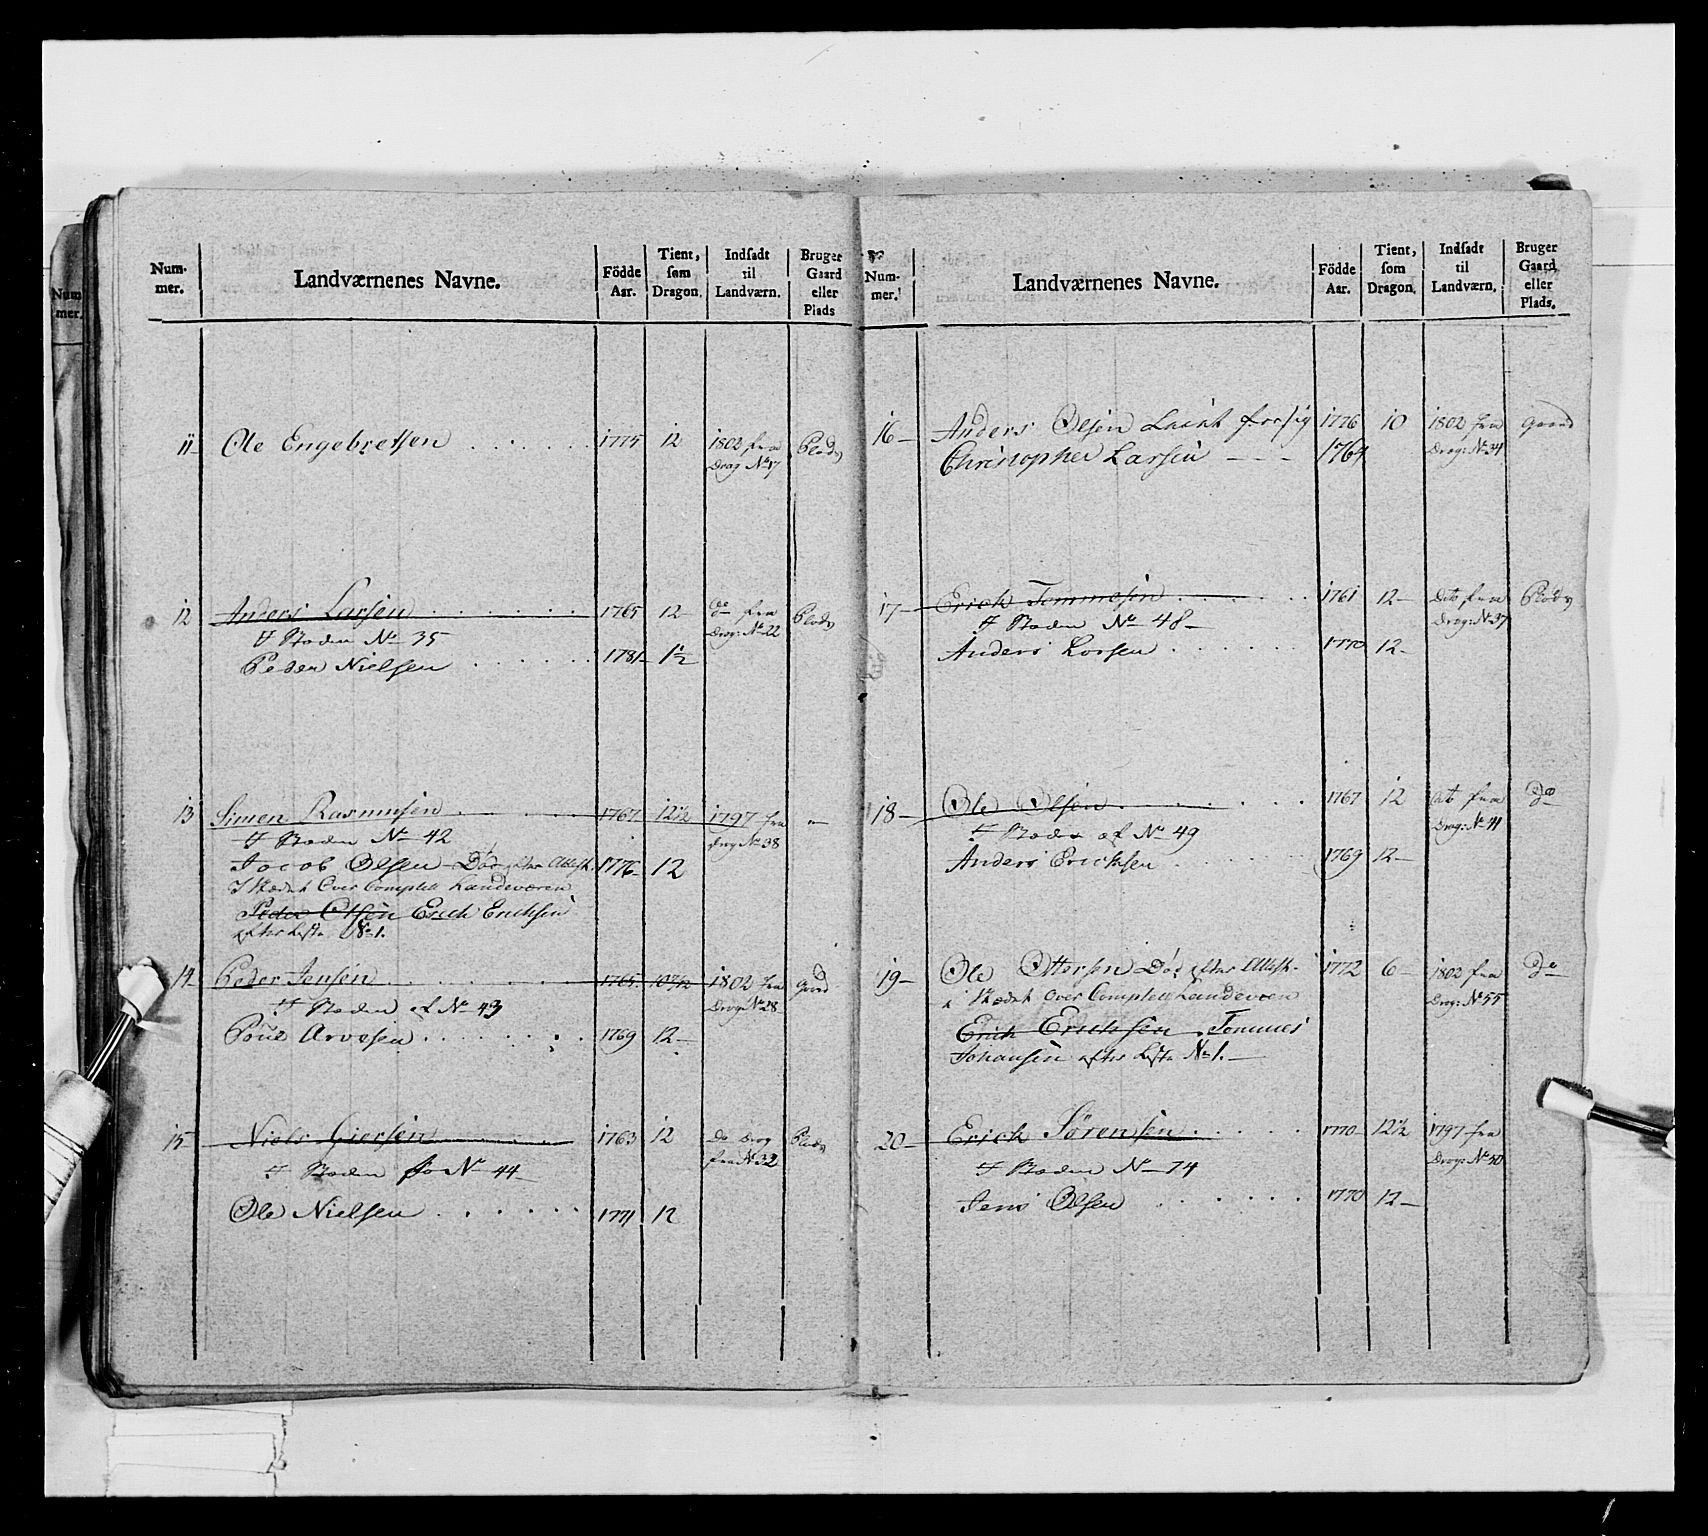 Num-
mer.
Landværnenes Navne.
Födde
Aar.
Tient,
som
Dragon.
Indsadt
til
Landværn.
Bruger
Gaard
eller
Plads
11- Ole Engebretsen 1775 12 1802 fra Plads
Drag No 17
12 Anders Larsen 1765 12- do fra Plads
Drag: No 22
No 35
Peder Nielsen 1781 1½
13 Simen Rasmusen 1767 12½ 1797 fra -
Drag No 38
No 42
Jacob Olsen Död efter Attest. 1776- 12
I Stædet Over Complett Landeværen
Peder Olsen Erich Erichsen
efter Liste No 1.
14- Peder Jensen 1765 10 1802 fra Gaard
Drag: No 28
af No 43
Arvesen 1769 12-
15 Niels 1763 12 Do Drag Plads
fra No 32
No 44
Ole Nielsen 1771 12
Num
mer.
Num-
mer.
Landværnenes Navne.
Födde
Aar.
Tient,
som
Dragon.
Indsadt
til
Landværn.
Bruger
Gaard
eller
Plads.
16- Anders Olsen 1776 10 1802 fra Gaard
Drag: No 34
Christopher Larsen 1764
17- Erich Tommesen 1761 12- Dito fra Plads
Drag: No 37
No 48-
Anders Larsen 1770 12-
18- Ole Olsen 1767 12 Dito fra do
Drag: No 41
af No 49
Anders Erichsen 1769 12-
19- Ole Ottersen Död efter Attest. 1772 6- 1802 fra do
Drag: No 55
i Stædet Over Complett Landeværen
Erich Erichsen Tommes
Johansen efter Liste No 1.-
20- Erich Sörensen 1770 12½ 1797 fra
Drag: No 50
No 74
Jens Olsen 1770 12-